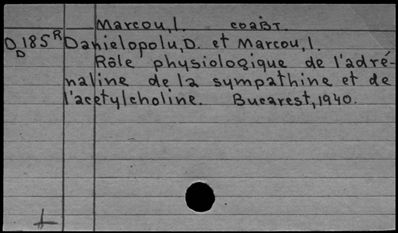 Marcou, I. соавт.
DD185R Danielopolu, D. et Marcou, I.
Rôle physiologique de l'adré-
naline de la sympathine et de
l'acetylcholine. Bucarest, 1940.